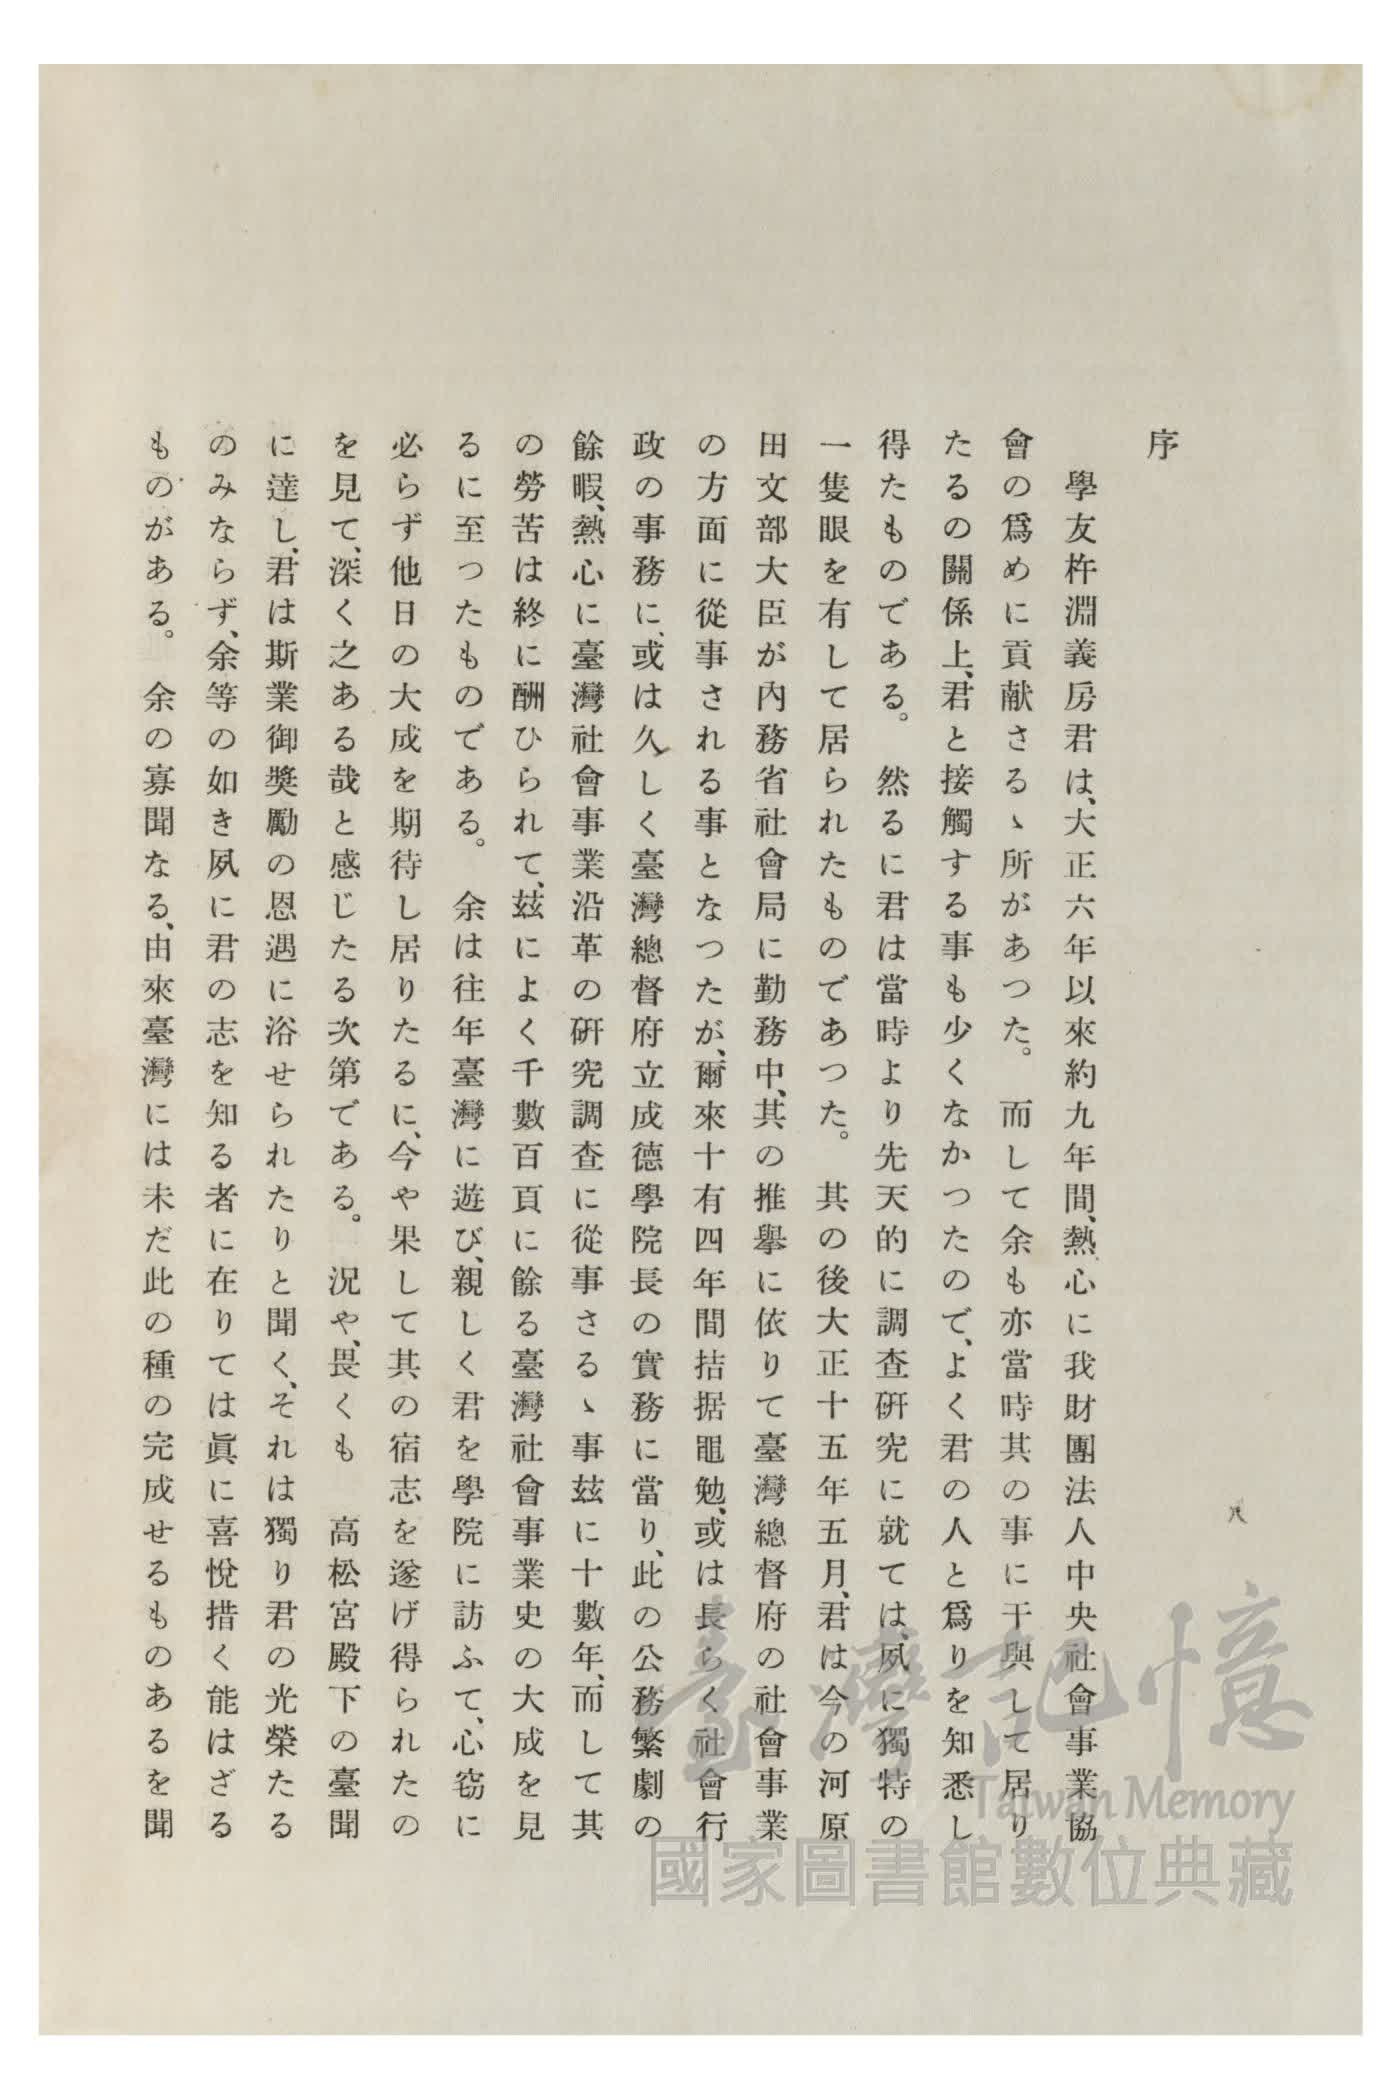 序
學友杵淵義房君は、大正六年以來約九年間、熱心に我財團法人中央社會事業協
會の爲めに貢献さるゝ所があつた。而して余も亦當時其の事に干與して居り
たるの關係上、君と接觸する事も少くなかつたので、よく君の人と爲りを知悉し
得たものである。然るに君は當時より先天的に調查硏究に就ては、夙に獨特の
一隻眼を有して居られたものであつた。其の後大正十五年五月、君は今の河原
田文部大臣が內務省社會局に勤務中、其の推擧に依りて臺灣總督府の社會事業
の方面に從事される事となつたが、爾來十有四年間拮据黽勉、或は長らく社會行
政の事務に、或は久しく臺灣總督府立成德學院長の實務に當り、此の公務繁劇の
餘暇、熱心に臺灣社會事業沿革の硏究調查に從事さるゝ事玆に十數年、而して其
の勞苦は終に酬ひられて、玆によく千數百頁に餘る臺灣社會事業史の大成を見
るに至つたものである。余は往年臺灣に遊び、親しく君を學院に訪ふて、心窃に
必らず他日の大成を期待し居りたるに、今や果して其の宿志を遂げ得られたの
を見て、深く之ある哉と感じたる次第である。況や、畏くも　高松宮殿下の臺聞
に達し、君は斯業御獎勵の恩遇に浴せられたりと聞く、それは獨り君の光榮たる
のみならず、余等の如き夙に君の志を知る者に在りては眞に喜悅措く能はざる
ものがある。余の寡聞なる、由來臺灣には未だ此の種の完成せるものあるを聞
臺灣記憶
Taiwan Memory
國家圖書館數位典藏